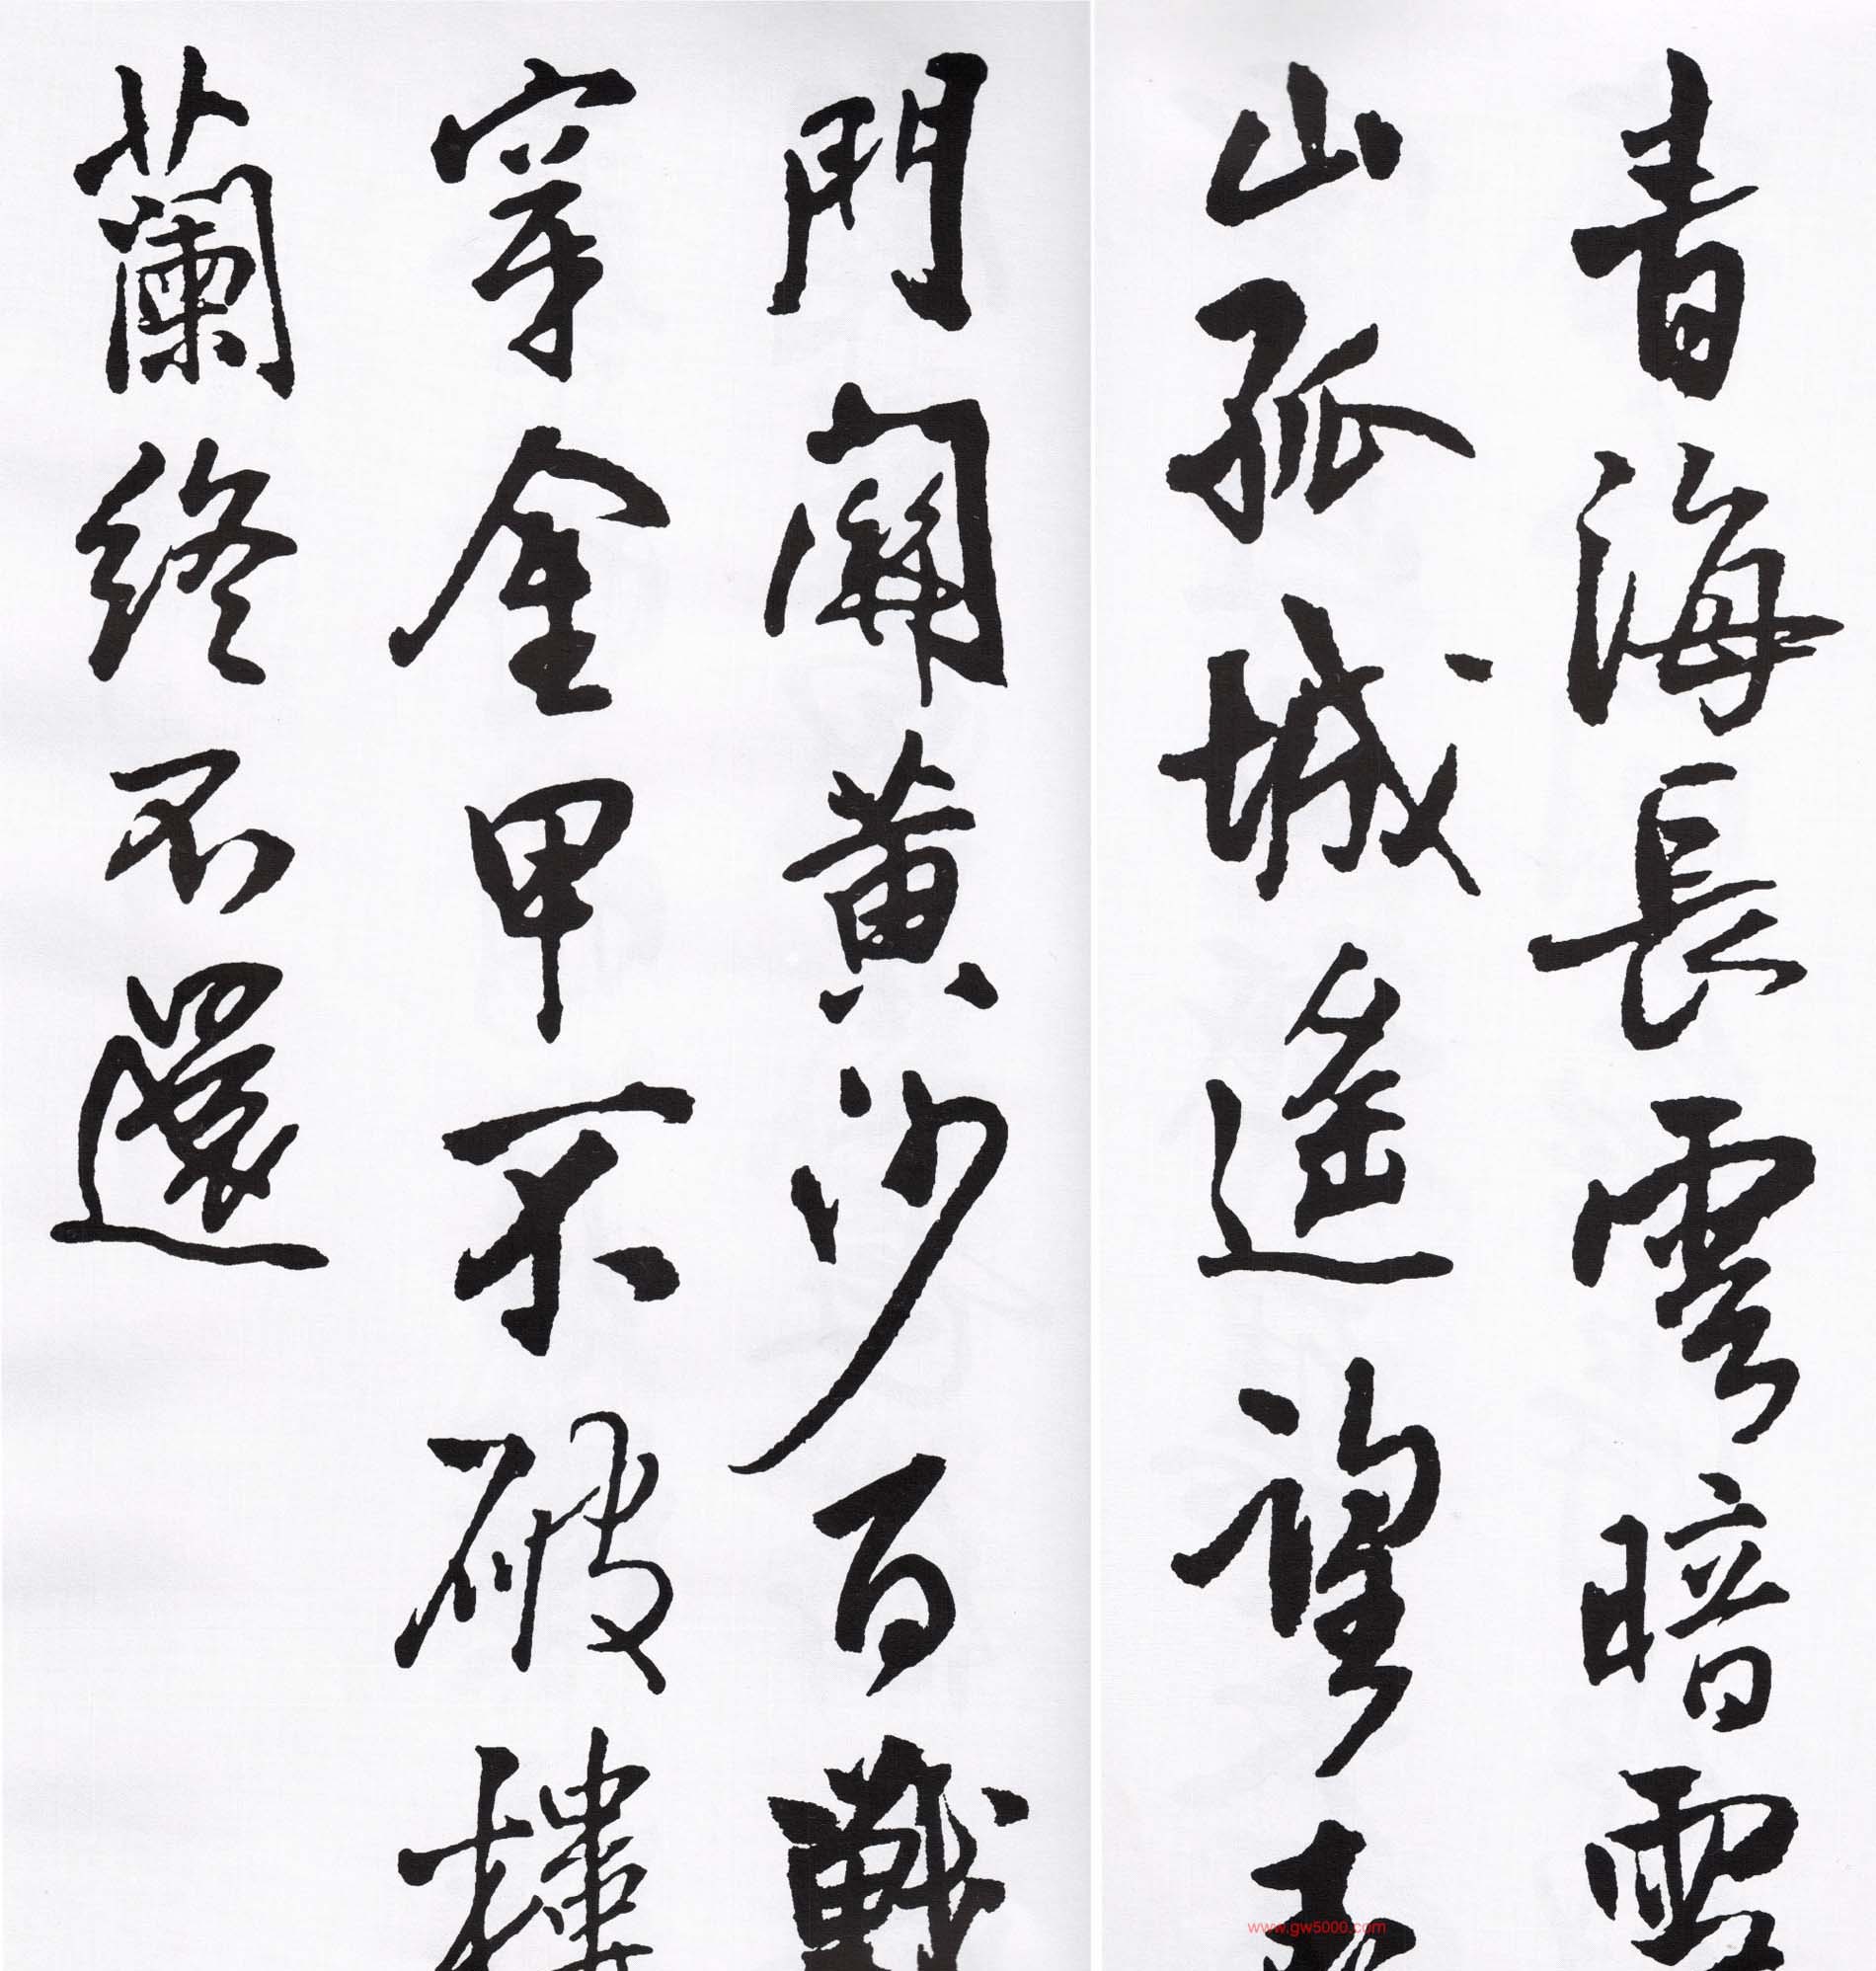 青海長雲暗雪
山孤城遙望玉
門關黄沙百戰
穿金甲不破樓
蘭終不還
www.gw5000.com